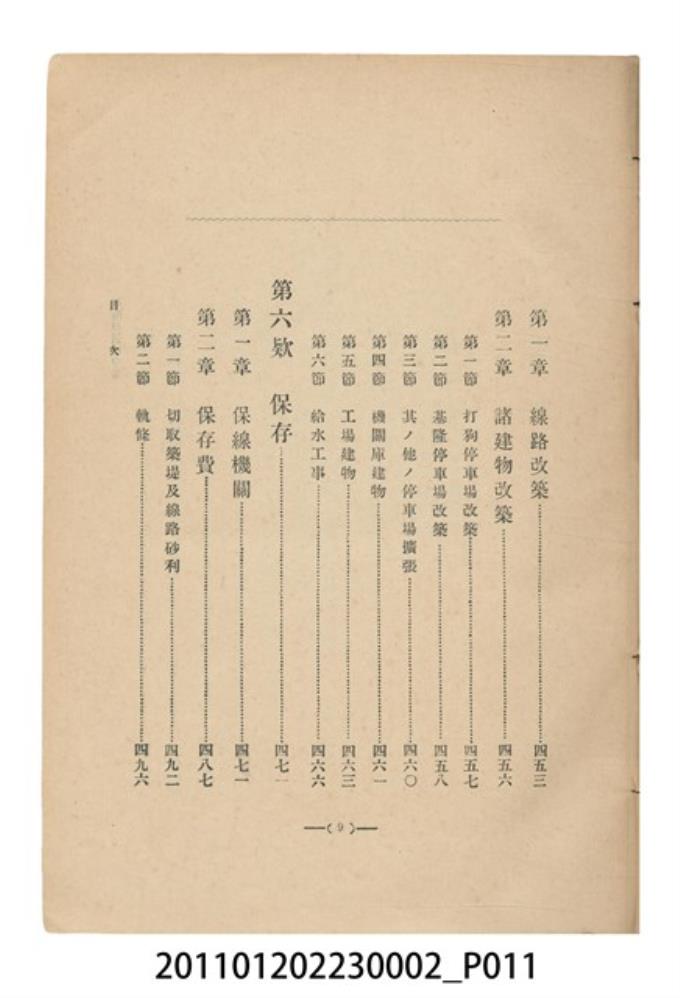 第一章 線路改築 四五三
第二章 諸建物改築 四五六
第一節 打狗停車場改築 四五七
第二節 基隆停車場改築 四五八
第三節 其ノ他ノ停車場擴張 四六〇
第四節 機關庫建物 四六一
第五節 工場建物 四六三
第六節 給水工事 四六六
第六欵 保存 四七一
第一章 保線機關 四七一
第二章 保存費 四八七
第一節 切取築堤及線路砂利 四九二
第二節 軌條 四九六
目次
(9)
201101202230002_P011